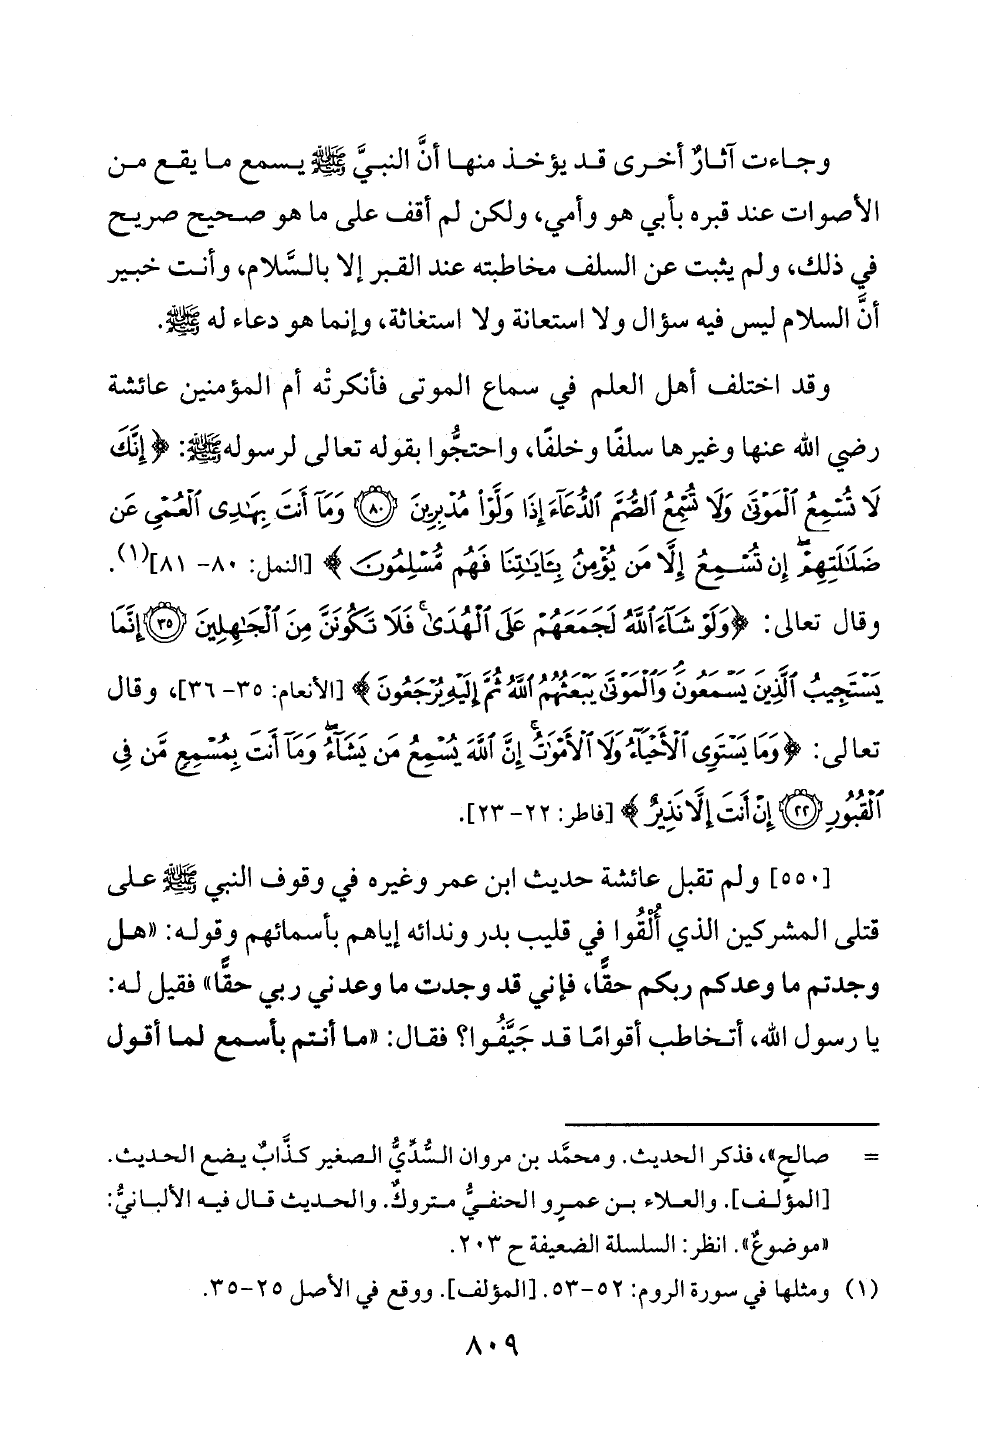 وجاءت آثارٌ أخرى قد يؤخذ منها أنَّ النبيَّ ﷺ يسمع ما يقع من
الأصوات عند قبره بأبي هو وأمي، ولكن لم أقف على ما هو صحيح صريح
في ذلك، ولم يثبت عن السلف مخاطبته عند القبر إلا بالسَّلام، وأنت خبير
أنَّ السلام ليس فيه سؤال ولا استعانة ولا استغاثة، وإنما هو دعاء له ﷺ.
وقد اختلف أهل العلم في سماع الموتى فأنكرتْه أم المؤمنين عائشة
رضي الله عنها وغيرها سلفًا وخلفًا، واحتجُّوا بقوله تعالى لرسوله ﷺ: ﴿إِنَّكَ
لَا تُسْمِعُ ٱلْمَوْتَىٰ وَلَا تُسْمِعُ ٱلصُّمَّ ٱلدُّعَآءَ إِذَا وَلَّوْا۟ مُدْبِرِينَ ﴿٨٠﴾ وَمَآ أَنتَ بِهَٰدِى ٱلْعُمْىِ عَن
ضَلَٰلَتِهِمْ ۖ إِن تُسْمِعُ إِلَّا مَن يُؤْمِنُ بِـَٔايَٰتِنَا فَهُم مُّسْلِمُونَ﴾ [النمل: ٨٠- ٨١](١).
وقال تعالى: ﴿وَلَوْ شَآءَ ٱللَّهُ لَجَمَعَهُمْ عَلَى ٱلْهُدَىٰ ۚ فَلَا تَكُونَنَّ مِنَ ٱلْجَٰهِلِينَ ﴿٣٥﴾ إِنَّمَا
يَسْتَجِيبُ ٱلَّذِينَ يَسْمَعُونَ ۘ وَٱلْمَوْتَىٰ يَبْعَثُهُمُ ٱللَّهُ ثُمَّ إِلَيْهِ يُرْجَعُونَ﴾ [الأنعام: ٣٥- ٣٦]، وقال
تعالى: ﴿وَمَا يَسْتَوِى ٱلْأَحْيَآءُ وَلَا ٱلْأَمْوَٰتُ ۚ إِنَّ ٱللَّهَ يُسْمِعُ مَن يَشَآءُ ۖ وَمَآ أَنتَ بِمُسْمِعٍ مَّن فِى
ٱلْقُبُورِ ﴿٢٢﴾ إِنْ أَنتَ إِلَّا نَذِيرٌ﴾ [فاطر: ٢٢- ٢٣].
[٥٥٠] ولم تقبل عائشة حديث ابن عمر وغيره في وقوف النبي ﷺ على
قتلى المشركين الذي أُلْقُوا في قليب بدر وندائه إياهم بأسمائهم وقوله: «هل
وجدتم ما وعدكم ربكم حقًّا، فإني قد وجدت ما وعدني ربي حقًّا» فقيل له:
يا رسول الله، أتخاطب أقوامًا قد جَيَّفُوا؟ فقال: «ما أنتم بأسمع لما أقول
= صالحٍ»، فذكر الحديث. ومحمَّد بن مروان السُّدِّيُّ الصغير كذَّابٌ يضع الحديث.
[المؤلف]. والعلاء بن عمرٍو الحنفيُّ متروكٌ. والحديث قال فيه الألبانيُّ:
«موضوعٌ». انظر: السلسلة الضعيفة ح ٢٠٣.
(١) ومثلها في سورة الروم: ٥٢-٥٣. [المؤلف]. ووقع في الأصل ٢٥-٣٥.
٨٠٩